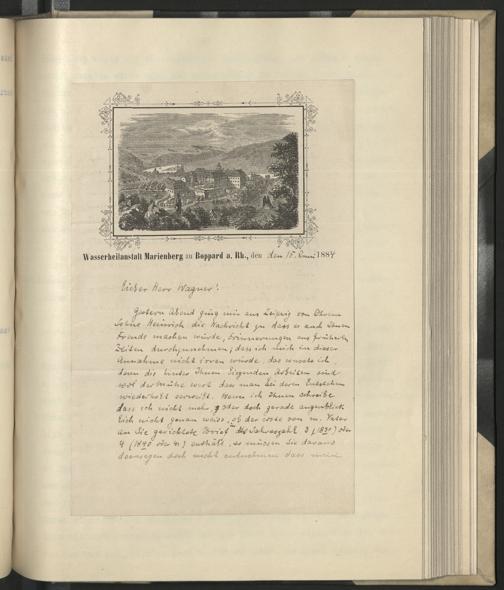 Wasserheilanstalt Marienberg zu Boppard a. Rh., den den 15. Juni 1884
Lieber Herr Wagner!
Gestern Abend ging mir aus Leipzig von Ihrem
Sohne Heinrich die Nachricht zu dass es auch Ihnen
Freude machen würde, Erinnerungen aus früheren
Zeiten durchzunehmen; dass ich mich in dieser
Annahme nicht irren würde, das wusste ich
denn die hinter Ihnen liegenden Arbeiten sind
wol der Mühe wert dass man bei deren Entstehen
wiederholt verweilt. Wenn ich Ihnen schreibe
dass ich nicht mehr, oder doch gerade augenblick
lich nicht genau weiss, ob der erste von m. Vater
an Sie gerichtete Brief die Jahreszahl 3 (1830) oder
4 (1840 oder 41) enthält, so müssen Sie daraus
deswegen doch nicht entnehmen dass mein